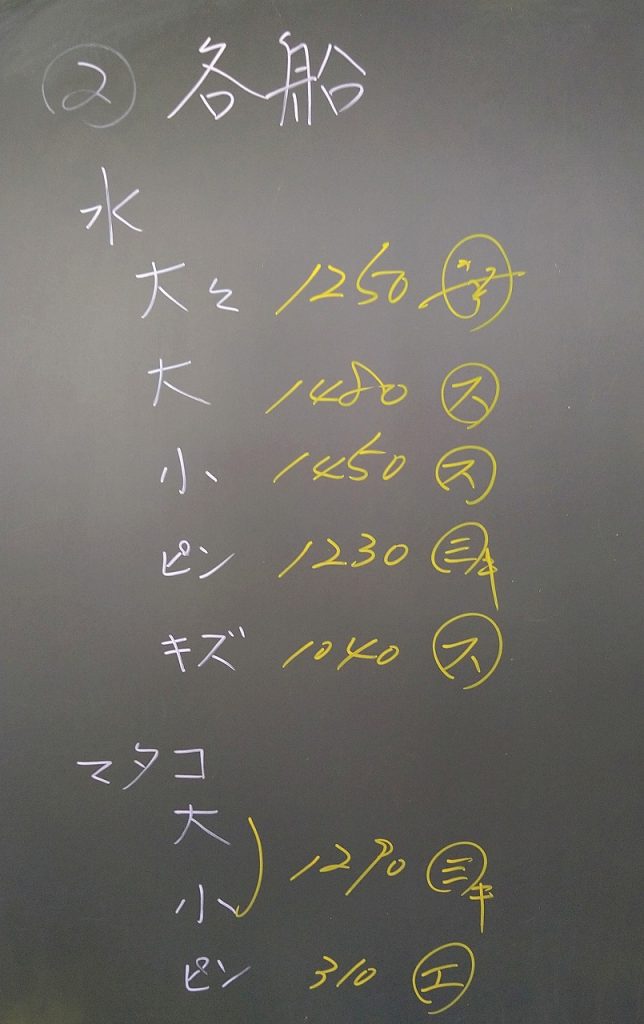 ② 各船
水
大々 1250
大 1480 ㋜
小 1450 ㋜
ピン 1230 ミキ
キズ 1040 ㋜
マダコ
大
小 1290 ミキ
ピン 310 ㋓